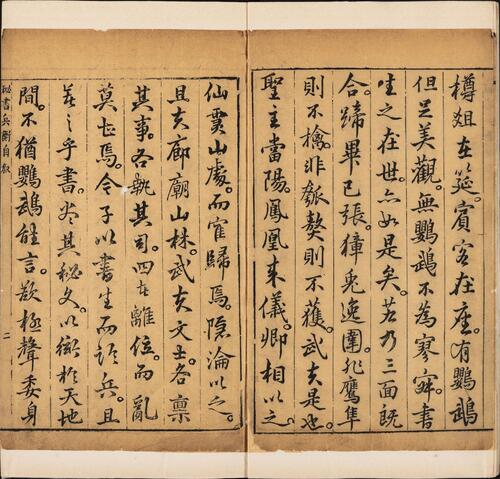 樽俎在筵。賓客在座。有鸚鵡
但足美觀。無鸚鵡不為寥寂。書
生之在世。亦如是矣。若乃三面既
合。蹄畢已張。獐兔逸圍。非鷹隼
則不擒。非獒則不獲。武夫是也。
聖主當陽。鳳凰來儀。卿相以之
仙靈山處。而寉歸焉。隱淪以之。
且夫廊廟山林。武夫文士。各稟
其事。各執其司。四者離位。而亂
莫甚焉。今子以書生而談兵。且
著之乎書。盡其秘文。以衒於天地
間。不猶鸚鵡能言。欲極聲委身
秘書兵衡自叙 二